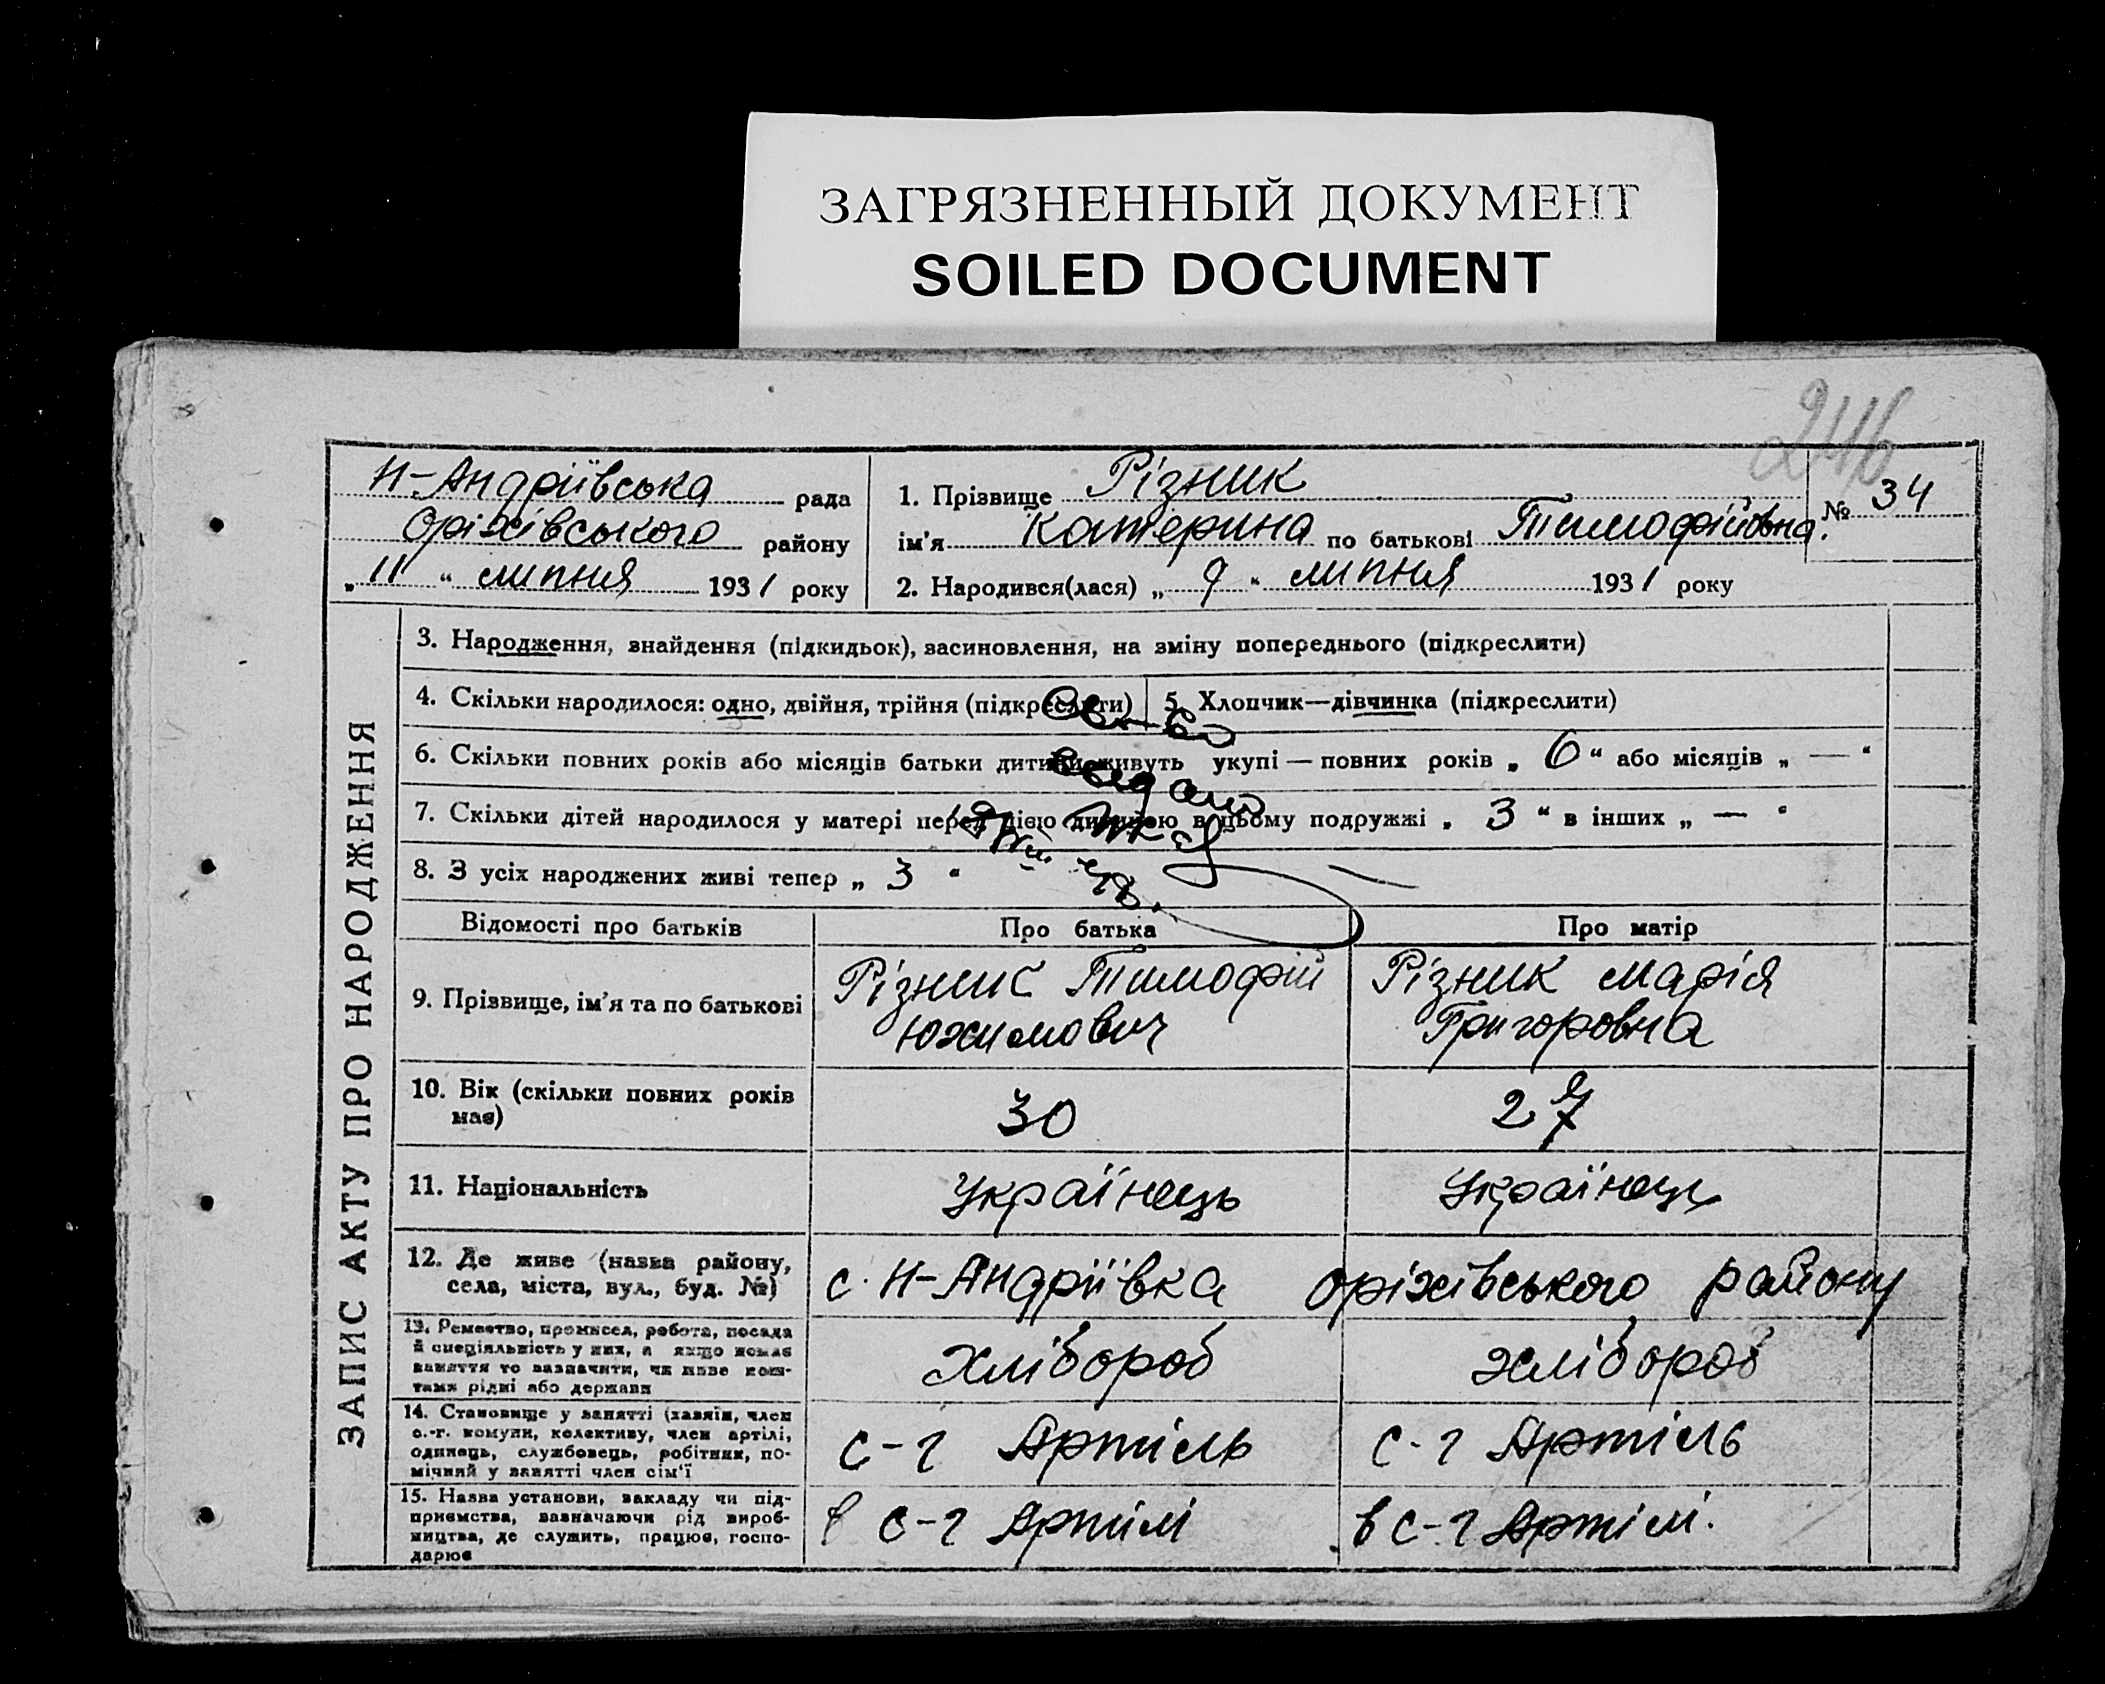 ЗАГРЯЗНЕННЫЙ ДОКУМЕНТ
SOILED DOCUMENT
246
Н-Андріївська рада
Оріхівського району
„ 11 “ липня 1931 року
1. Прізвище Різник
ім'я Катерина по батькові Тимофійовна.
№ 34
2. Народився(лася) „ 9 “ липня 1931 року
ЗАПИС АКТУ ПРО НАРОДЖЕННЯ
3. Народження, знайдення (підкидьок), засиновлення, на зміну попереднього (підкреслити)
4. Скільки народилося: одно, двійня, трійня (підкреслити)
5. Хлопчик—дівчинка (підкреслити)
6. Скільки повних років або місяців батьки дитини живуть укупі — повних років „ 6 “ або місяців „ — “
7. Скільки дітей народилося у матері перед цією дитиною в цьому подружжі „ 3 “ в інших „ — “
8. З усіх народжених живі тепер „ 3 “
Св-во
видано
Відомості про батьків
Про батька
Про матір
9. Прізвище, ім'я та по батькові
Різник Тимофій
Юхимович
Різник Марія
Григоровна
10. Вік (скільки повних років
має)
30
27
11. Національність
Українець
Українець
12. Де живе (назва району,
села, міста, вул., буд. №)
с. Н-Андріївка Оріхівського району
13. Ремество, промисел, робота, посада
й спеціяльність у них, а якщо немає
заняття то зазначити, чи живе кош-
тами рідні або держави
хлібороб
хлібороб
14. Становище у занятті (хазяїн, член
с.-г. комуни, колективу, член артілі,
одинець, службовець, робітник, по-
мічний у занятті член сім'ї
с-г Артіль
с-г Артіль
15. Назва установи, закладу чи під-
приємства, зазначаючи рід вироб-
ництва, де служить, працює, госпо-
дарює
в с-г Артілі
в с-г Артілі.